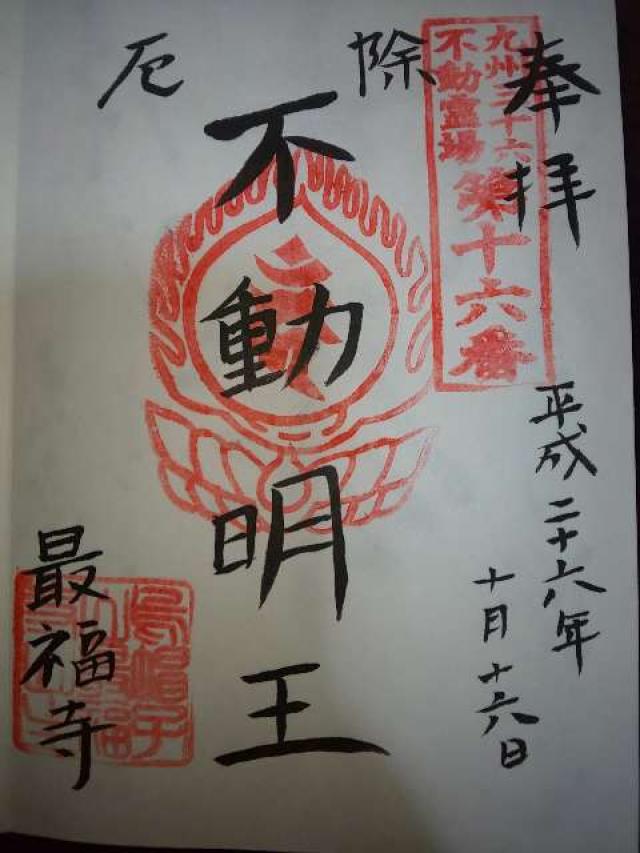 奉拝
九州三十六
不動霊場
第十六番
平成二十六年
十月十六日
厄除
不動明王
最福寺